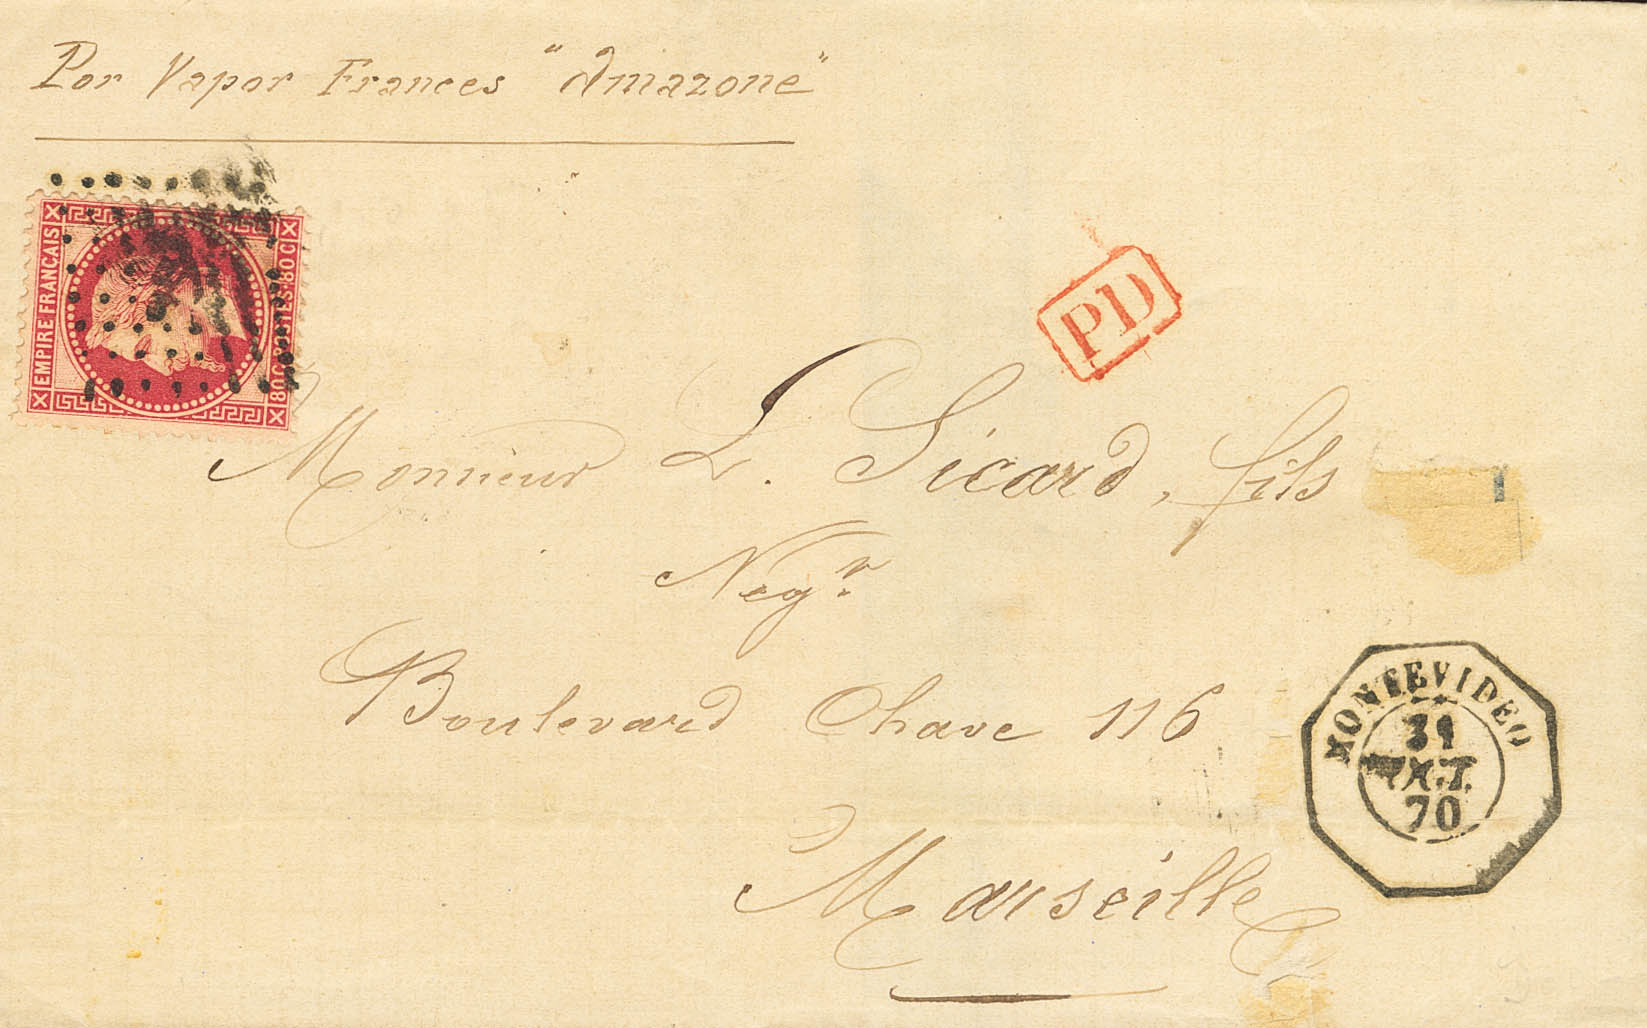 Por Vapor Frances "Amazone"
EMPIRE FRANÇAIS
80 C POSTES 80 C
PD
Monsieur L. Sicard, fils
Negr
Boulevard Chave 116
MONTEVIDEO
31
70
Marseille